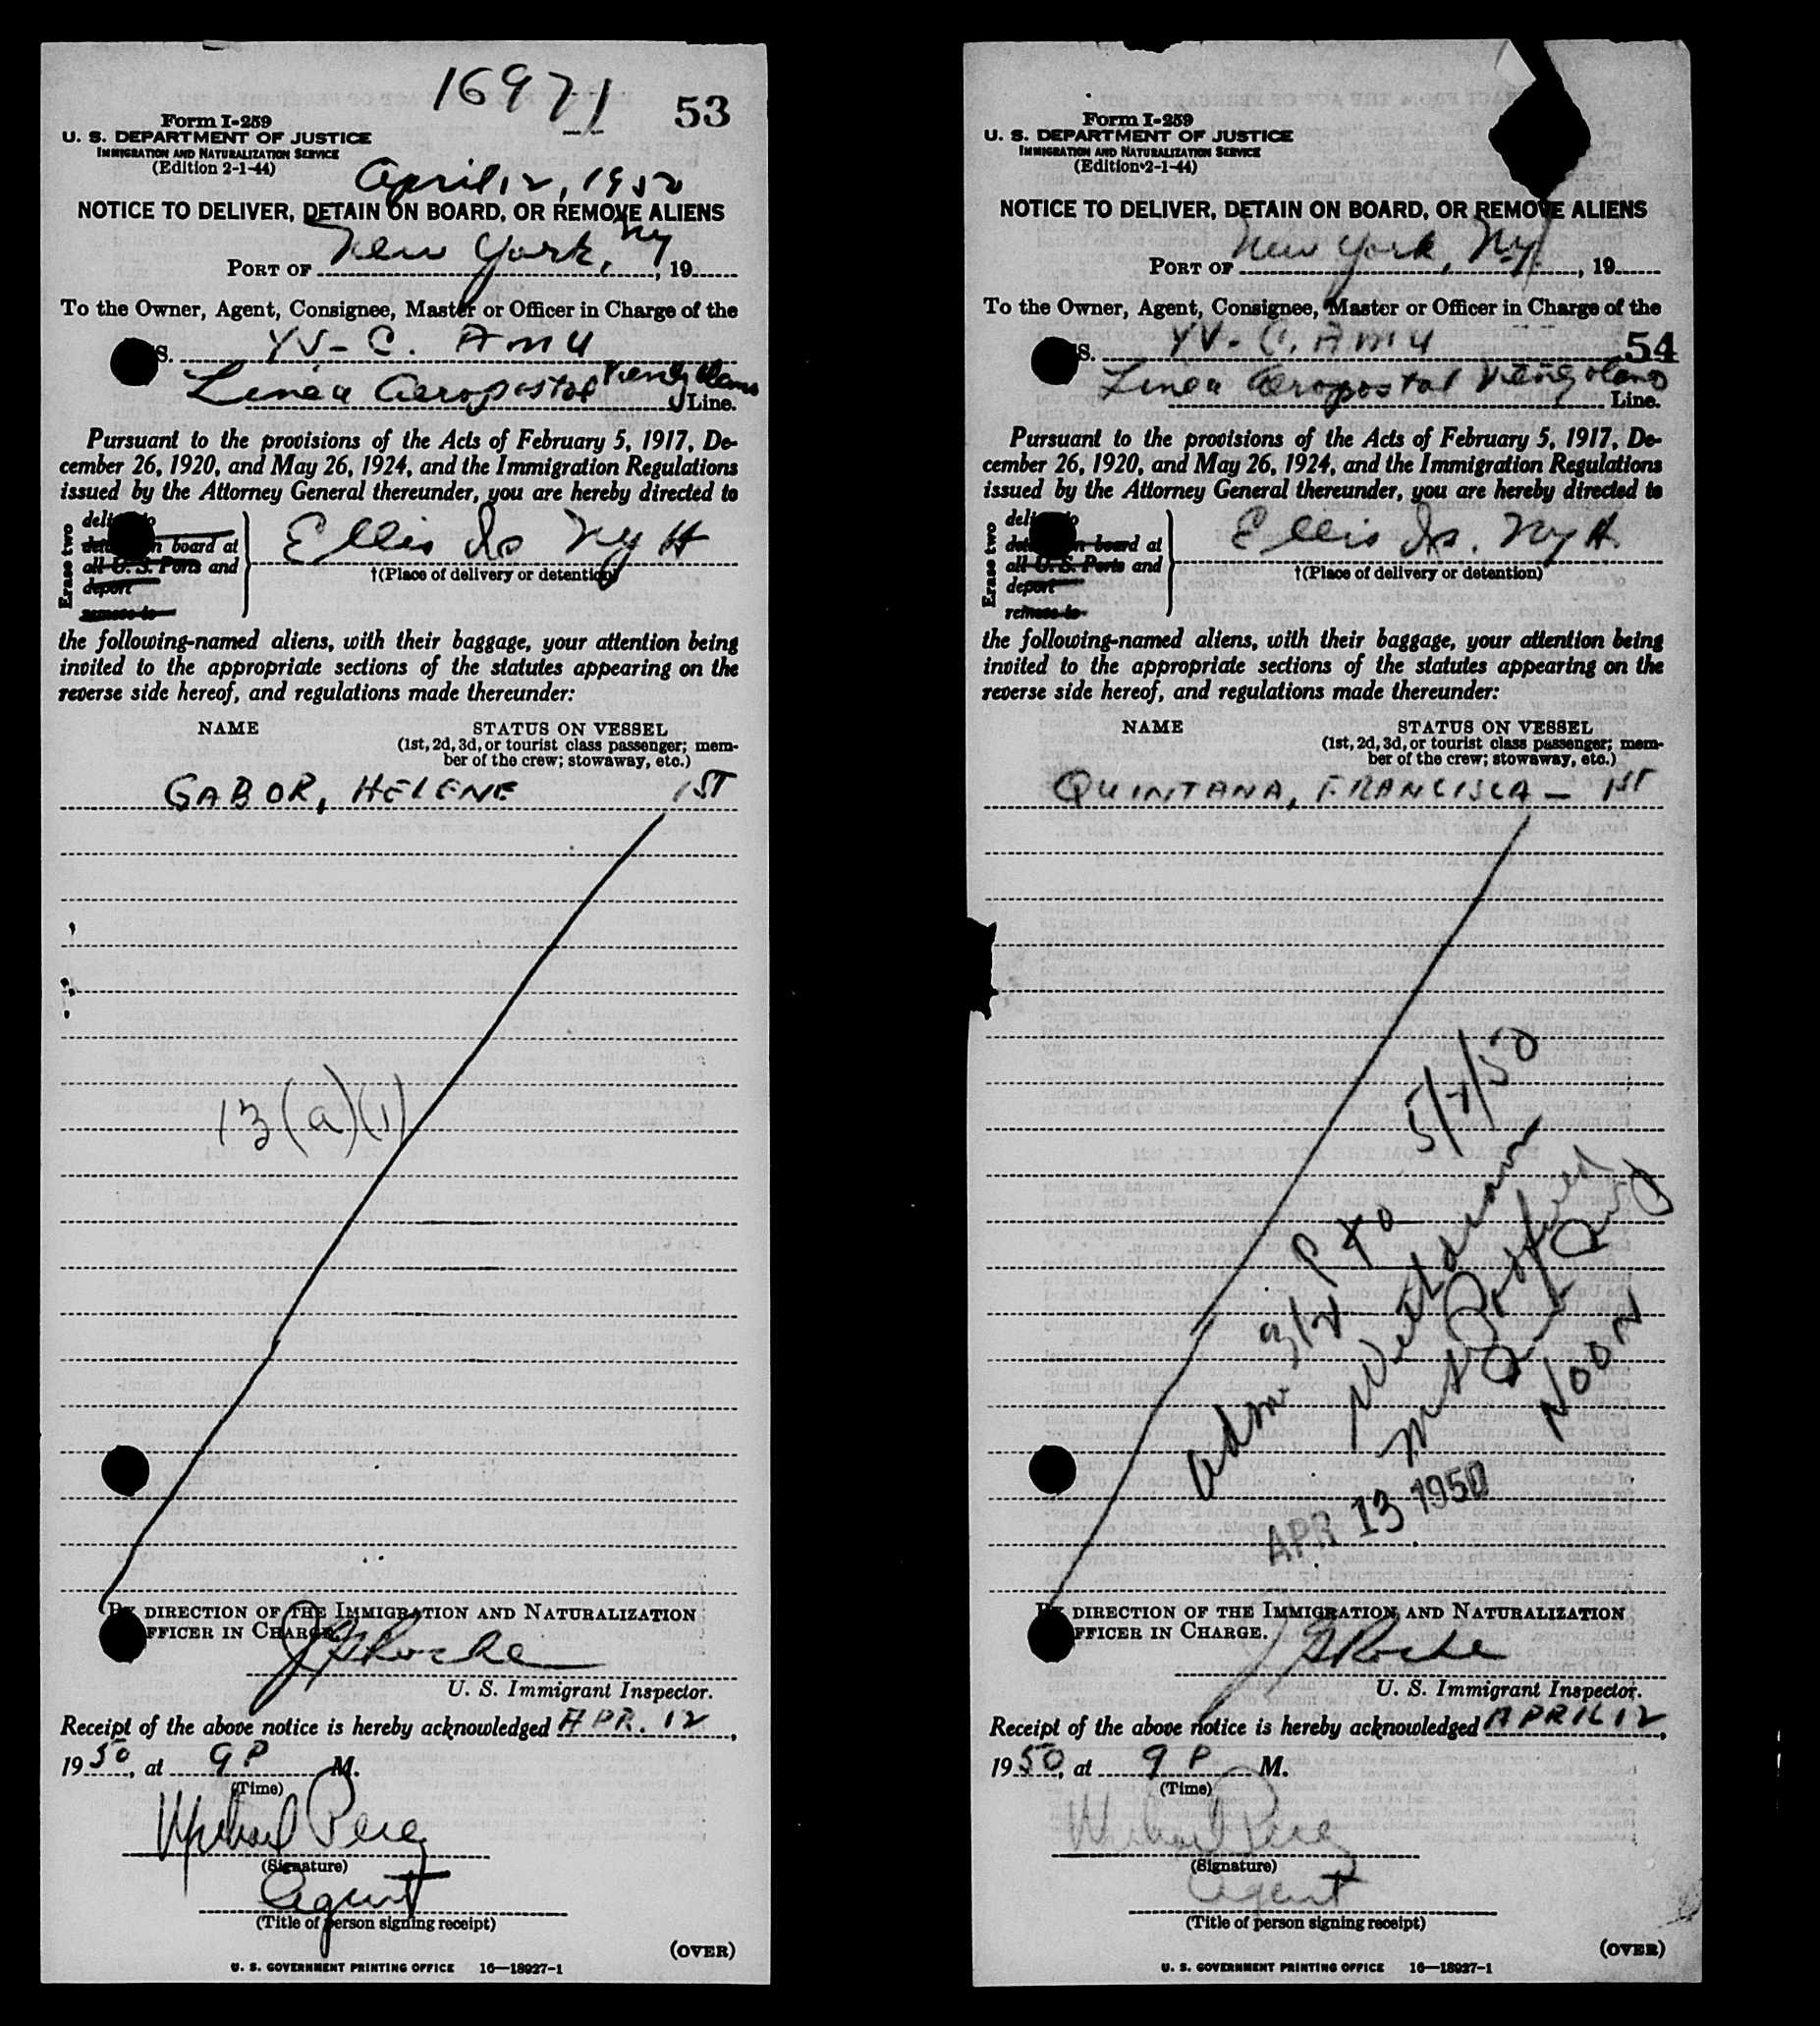 16971
53
Form I-259
U. S. DEPARTMENT OF JUSTICE
IMMIGRATION AND NATURALIZATION SERVICE
(Edition 2-1-44)
April 12, 1950
NOTICE TO DELIVER, DETAIN ON BOARD, OR REMOVE ALIENS
PORT OF New York, NY, 19
To the Owner, Agent, Consignee, Master or Officer in Charge of the
S. YV-C. AMU
Linea Aeropostal Line.
Pursuant to the provisions of the Acts of February 5, 1917, De-
cember 26, 1920, and May 26, 1924, and the Immigration Regulations
issued by the Attorney General thereunder, you are hereby directed to
Erase two
deli o
n board at
all U. S. Ports and
deport
remove to
Ellis Is NYH
†(Place of delivery or detention)
the following-named aliens, with their baggage, your attention being
invited to the appropriate sections of the statutes appearing on the
reverse side hereof, and regulations made thereunder:
NAME STATUS ON VESSEL
(1st, 2d, 3d, or tourist class passenger; mem-
ber of the crew; stowaway, etc.)
GABOR, HELENE 1ST
13(a)(1)
BY DIRECTION OF THE IMMIGRATION AND NATURALIZATION
FFICER IN CHARGE.
J G Roche
U. S. Immigrant Inspector.
Receipt of the above notice is hereby acknowledged APR. 12,
1950, at 9 P M.
(Time)
Michael Perez
(Signature)
Agent
(Title of person signing receipt)
(OVER)
U. S. GOVERNMENT PRINTING OFFICE 16—18927-1
Form I-259
U. S. DEPARTMENT OF JUSTICE
IMMIGRATION AND NATURALIZATION SERVICE
(Edition 2-1-44)
NOTICE TO DELIVER, DETAIN ON BOARD, OR REMOVE ALIENS
PORT OF New York, NY, 19
To the Owner, Agent, Consignee, Master or Officer in Charge of the
S. YV-C. AMU 54
Linea Aeropostal Line.
Pursuant to the provisions of the Acts of February 5, 1917, De-
cember 26, 1920, and May 26, 1924, and the Immigration Regulations
issued by the Attorney General thereunder, you are hereby directed to
Erase two
deli o
n board at
all U. S. Ports and
deport
remove to
Ellis Is. NYH.
†(Place of delivery or detention)
the following-named aliens, with their baggage, your attention being
invited to the appropriate sections of the statutes appearing on the
reverse side hereof, and regulations made thereunder:
NAME STATUS ON VESSEL
(1st, 2d, 3d, or tourist class passenger; mem-
ber of the crew; stowaway, etc.)
QUINTANA, FRANCISCA — 1ST
Adm 3/2 P
NOON
APR 13 1950
BY DIRECTION OF THE IMMIGRATION AND NATURALIZATION
FFICER IN CHARGE.
J G Roche
U. S. Immigrant Inspector.
Receipt of the above notice is hereby acknowledged APRIL 12,
1950, at 9 P M.
(Time)
Michael Perez
(Signature)
Agent
(Title of person signing receipt)
(OVER)
U. S. GOVERNMENT PRINTING OFFICE 16—18927-1